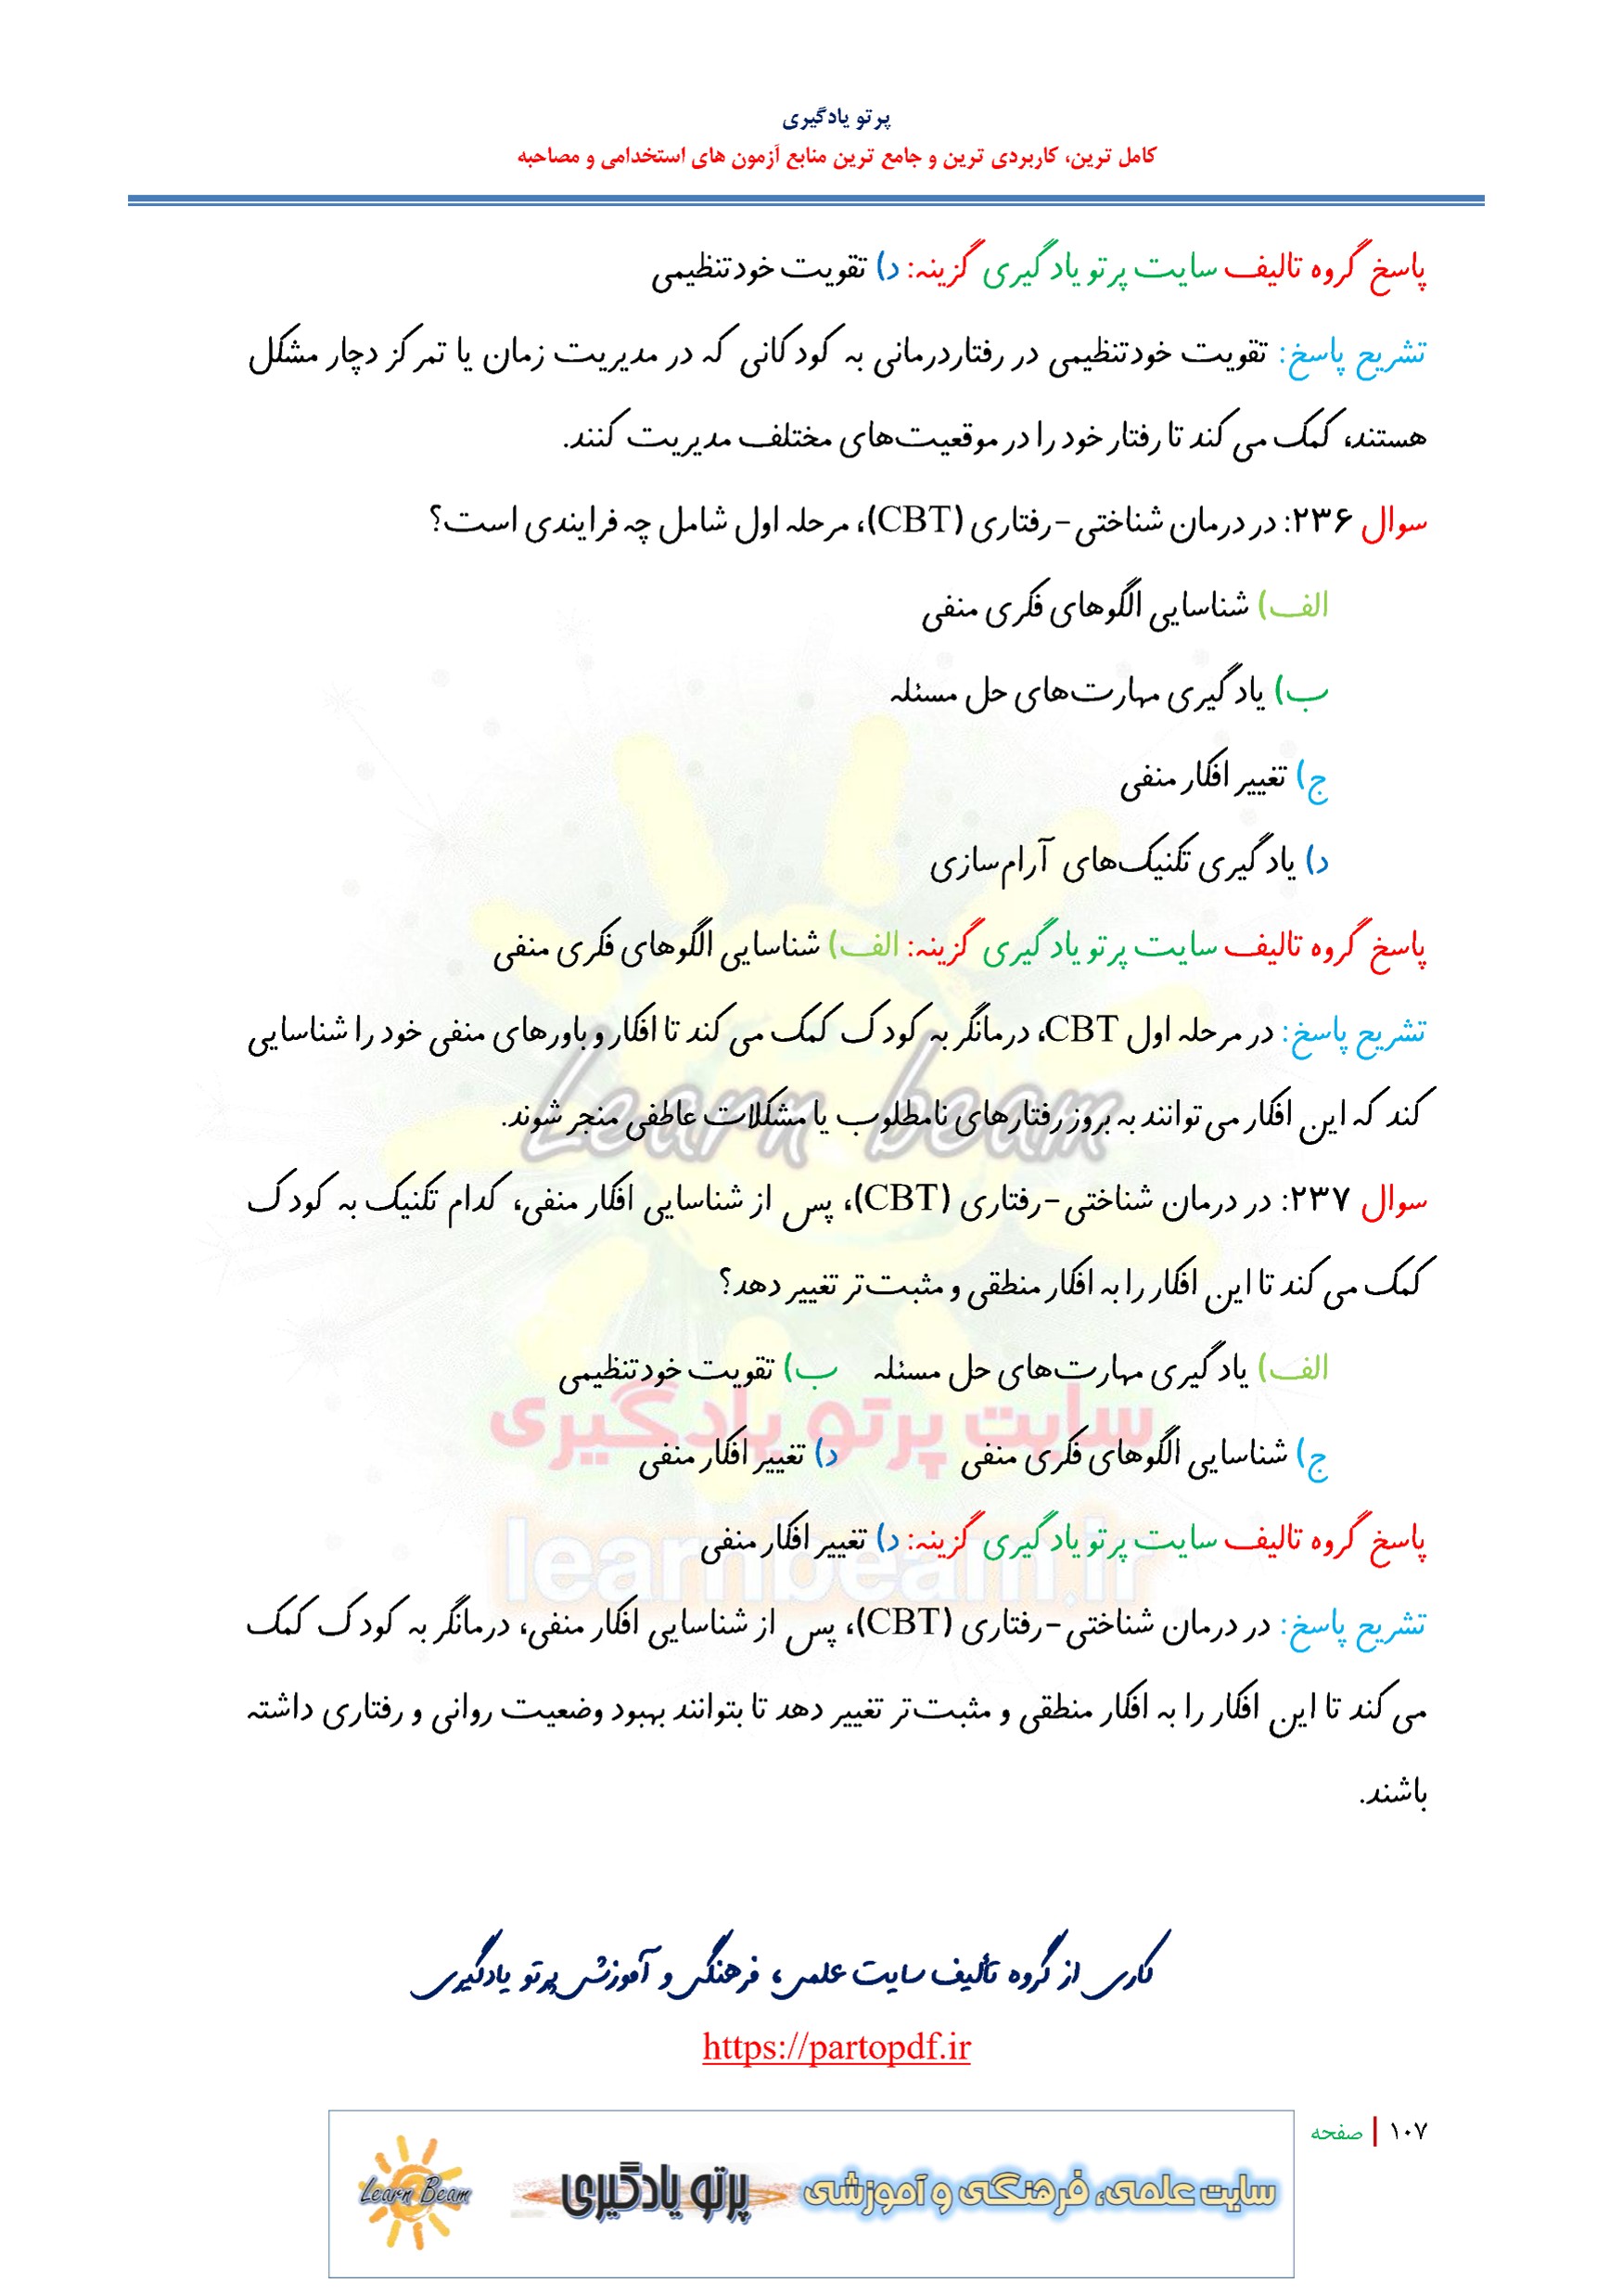 پرتو یادگیری
کامل ترین، کاربردی ترین و جامع ترین منابع آزمون های استخدامی و مصاحبه
پاسخ گروه تالیف سایت پرتو یادگیری گزینه: د) تقویت خودتنظیمی
تشریح پاسخ: تقویت خودتنظیمی در رفتاردرمانی به کودکانی که در مدیریت زمان یا تمرکز دچار مشکل
هستند، کمک می کند تا رفتار خود را در موقعیت‌های مختلف مدیریت کنند.
سوال ۲۳۶: در درمان شناختی-رفتاری (CBT)، مرحله اول شامل چه فرایندی است؟
الف) شناسایی الگوهای فکری منفی
ب) یادگیری مهارت‌های حل مسئله
ج) تغییر افکار منفی
د) یادگیری تکنیک‌های آرام‌سازی
پاسخ گروه تالیف سایت پرتو یادگیری گزینه: الف) شناسایی الگوهای فکری منفی
تشریح پاسخ: در مرحله اول CBT، درمانگر به کودک کمک می کند تا افکار و باورهای منفی خود را شناسایی
کند که این افکار می‌توانند به بروز رفتارهای نامطلوب یا مشکلات عاطفی منجر شوند.
سوال ۲۳۷: در درمان شناختی-رفتاری (CBT)، پس از شناسایی افکار منفی، کدام تکنیک به کودک
کمک می کند تا این افکار را به افکار منطقی و مثبت‌تر تغییر دهد؟
الف) یادگیری مهارت‌های حل مسئله ب) تقویت خودتنظیمی
ج) شناسایی الگوهای فکری منفی د) تغییر افکار منفی
پاسخ گروه تالیف سایت پرتو یادگیری گزینه: د) تغییر افکار منفی
تشریح پاسخ: در درمان شناختی-رفتاری (CBT)، پس از شناسایی افکار منفی، درمانگر به کودک کمک
می کند تا این افکار را به افکار منطقی و مثبت‌تر تغییر دهد تا بتوانند بهبود وضعیت روانی و رفتاری داشته
باشند.
Learn beam
سایت پرتو یادگیری
learnbeam.ir
کاری از گروه تألیف سایت علمی، فرهنگی و آموزشی پرتو یادگیری
https://partopdf.ir
۱۰۷ | صفحه
سایت علمی، فرهنگی و آموزشی پرتو یادگیری Learn Beam